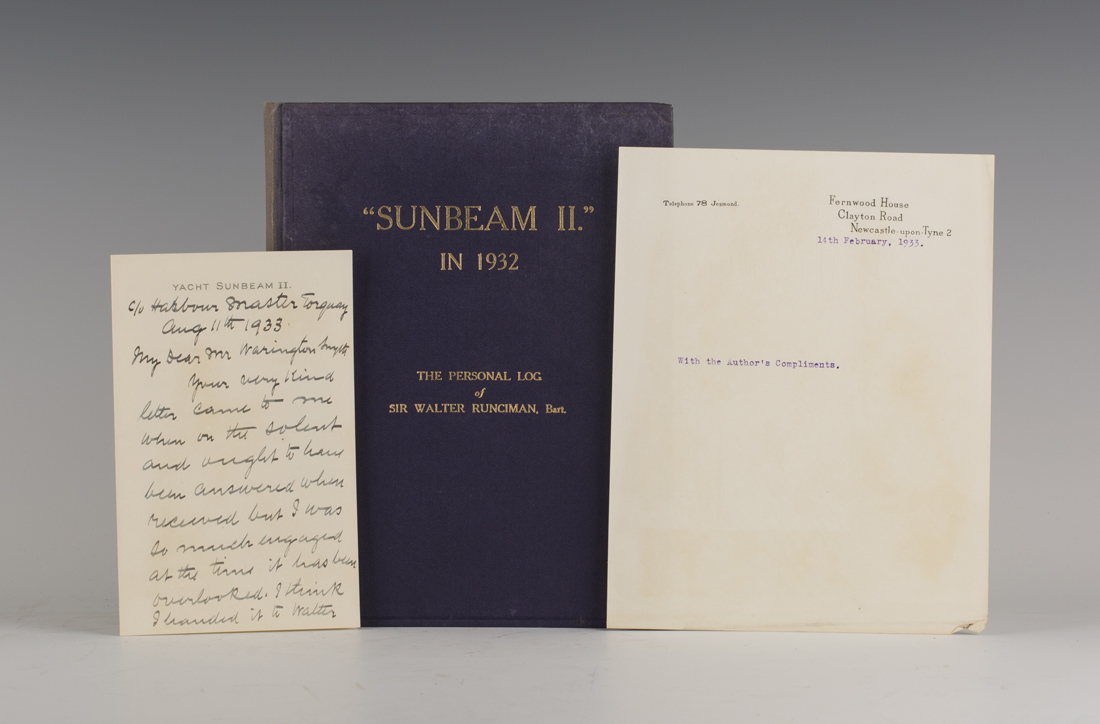 YACHT SUNBEAM II.
c/o Harbour Master Torquay
Aug 11th 1933.
My Dear Mr Warington Smyth
Your very kind
letter came to me
when on the Solent
and ought to have
been answered when
received but I was
so much engaged
at the time it has been
overlooked. I think
I handed it to Walter
"SUNBEAM II."
IN 1932
THE PERSONAL LOG
of
SIR WALTER RUNCIMAN, Bart.
Telephone 78 Jesmond.
Fernwood House
Clayton Road
Newcastle-upon-Tyne 2
14th February, 1933.
With the Author's Compliments.